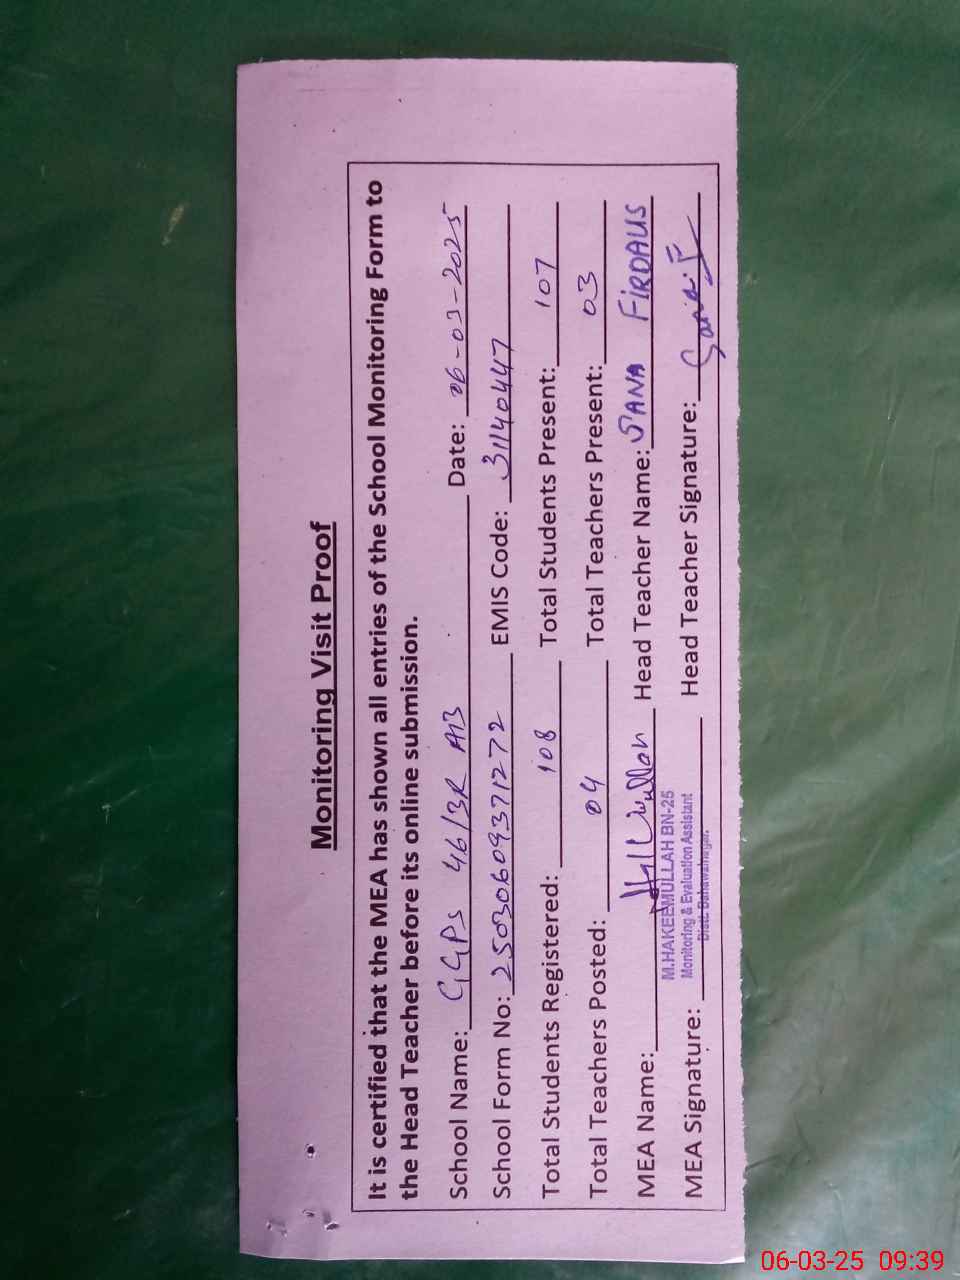 Monitoring Visit Proof
It is certified that the MEA has shown all entries of the School Monitoring Form to
the Head Teacher before its online submission.
School Name: GGPS 46/3R AB Date: 06-03-2025
School Form No: 25030609371272 EMIS Code: 31140447
Total Students Registered: 108 Total Students Present: 107
Total Teachers Posted: 04 Total Teachers Present: 03
MEA Name: Head Teacher Name: SANA FIRDAUS
M.HAKEEMULLAH BN-25
Monitoring & Evaluation Assistant
Distt. Bahawalnagar.
MEA Signature: Head Teacher Signature: Sana F
06-03-25 09:39